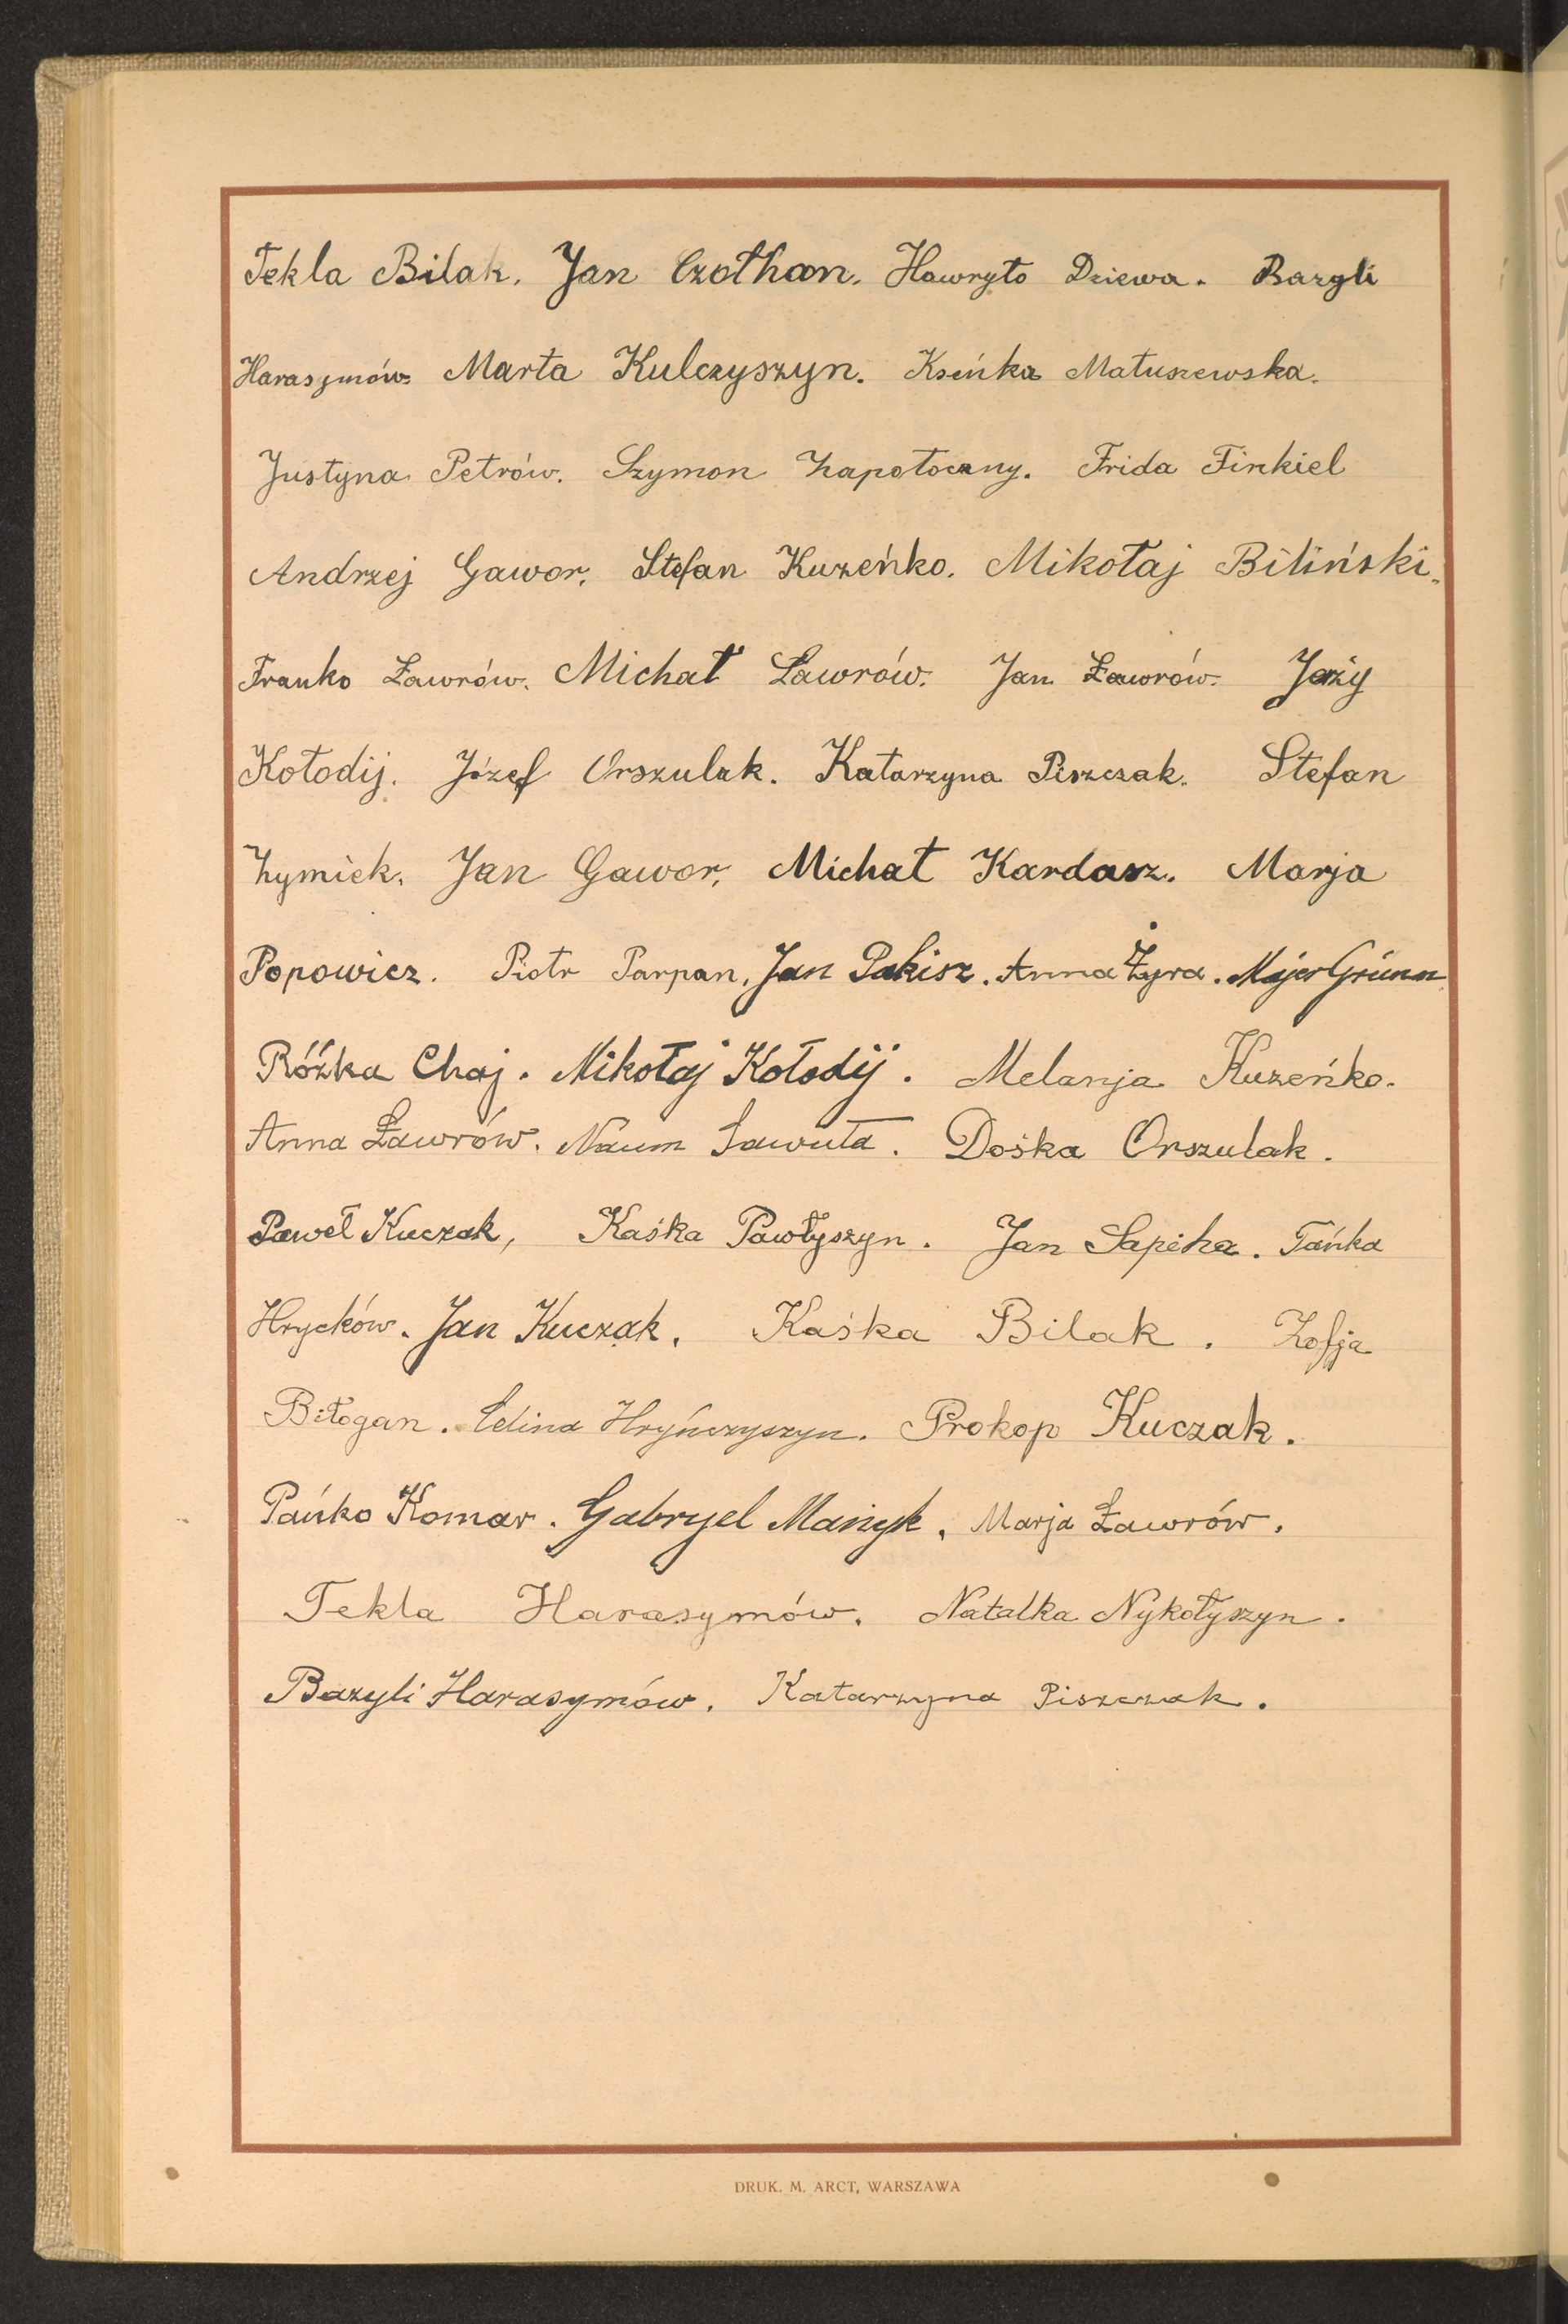 Tekla Bilak. Jan Czołhan. Hawryło Dziewa. Bazyli
Harasymów. Marta Kulczyszyn. Kseńka Matuszewska.
Justyna Petrów. Szymon Zapotoczny. Frida Finkiel
Andrzej Gawor. Stefan Kuzeńko. Mikołaj Biliński.
Franko Ławrów. Michał Ławrów. Jan Ławrów. Jeży
Kołodij. Józef Orszulak. Katarzyna Piszczak. Stefan
Zymiek. Jan Gawor. Michał Kardasz. Marja
Popowicz. Piotr Parpan. Jan Pakisz. Anna Żyra. Majer Grünn
Różka Chaj. Mikołaj Kołodij. Melanja Kuzeńko.
Anna Ławrów. Naum Sawuła. Dośka Orszulak.
Paweł Kuczak, Kaśka Pawłyszyn. Jan Sapiha. Tańka
Hryćków. Jan Kuczak. Kaśka Bilak. Zofja
Biłogan. Edina Hryńczyszyn. Prokop Kuczak.
Pańko Komar. Gabryel Manyk. Marja Ławrów.
Tekla Harasymów. Natalka Nykołyszyn.
Bazyli Harasymów. Katarzyna Piszczak.
DRUK. M. ARCT, WARSZAWA